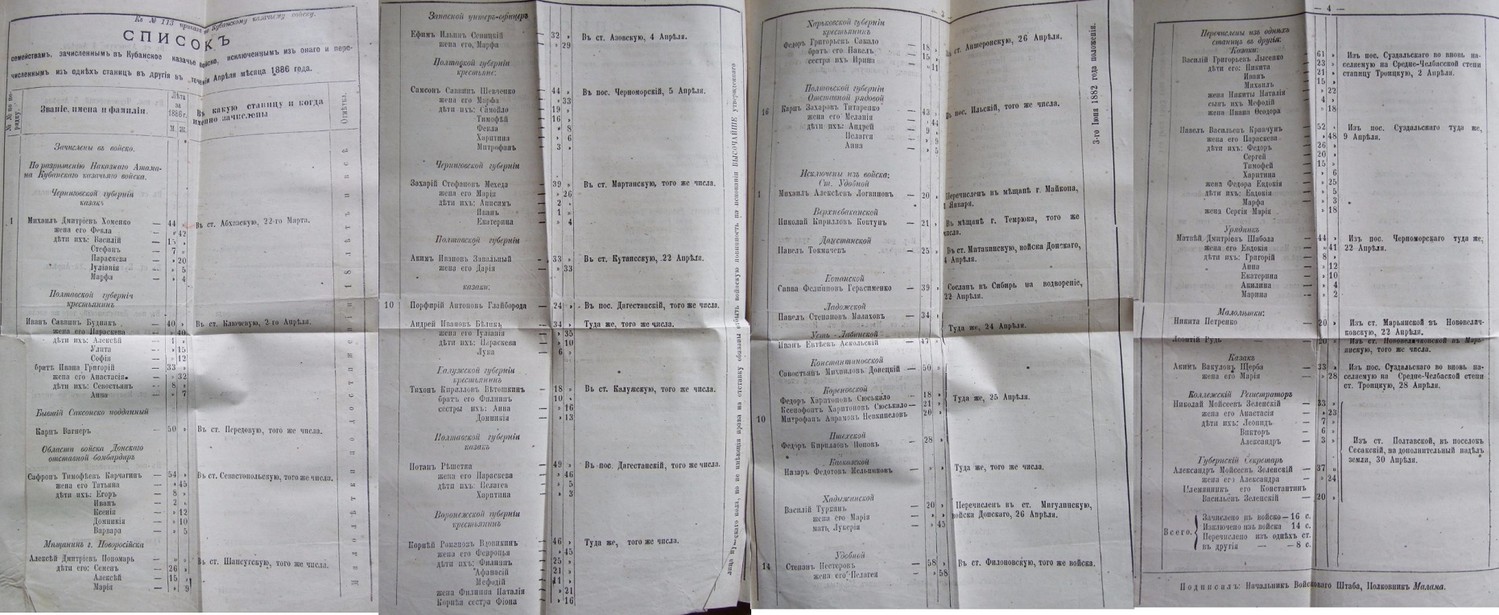 Къ № 113 приказа по Кубанскому казачьему войску.
СПИСОКЪ
семействамъ, зачисленнымъ въ Кубанское казачье войско, исключеннымъ изъ онаго и пере-
численнымъ изъ однѣхъ станицъ въ другія въ теченіи Апрѣля мѣсяца 1886 года.
Званіе, имена и фамиліи.
Лѣта за 1886 г.
М. Ж.
Въ какую станицу и когда
именно зачислены
Отмѣтки.
Зачислены въ войско.
По разрѣшенію Наказнаго Атама-
на Кубанскаго казачьяго войска.
Черниговской губерніи
казакъ
1 Михаилъ Дмитріевъ Хоменко — 44 » Въ ст. Абхазскую, 22-го Марта.
жена его Фекла » 42
дѣти ихъ: Василій —
Стефанъ — 7 »
Параскева — » 20
Іуліанія — » 5
Марфа — » 4
Полтавской губерніи
крестьянинъ
Иванъ Саввинъ Будникъ 40 » Въ ст. Ключевую, 2-го Апрѣля.
жена его Параскева » 40
дѣти ихъ: Алексѣй 1 »
Улита » 15
Софія » 12
братъ Ивана Григорій 33 »
жена его Анастасія » 32
дѣти ихъ: Севостьянъ 8 »
Анна » 7
Бывшій Саксонско подданный
Карпъ Вагнеръ 50 » Въ ст. Передовую, того же числа.
Области войска Донскаго
отставной бомбардиръ
Сафронъ Тимофѣевъ Карчагинъ 54 » Въ ст. Севастопольскую, того же числа.
жена его Татьяна — » 45
дѣти ихъ: Егоръ — 8 »
Иванъ — 2 »
Ксенія — » 12
Домникія — » 10
Варвара — » 5
Мѣщанинъ г. Новоросійска
Алексѣй Дмитріевъ Пономарь Въ ст. Шапсугскую, того же числа.
дѣти его: Семенъ — 26 »
Алексѣй 15
Марія » 9
Запасной унтеръ-офицеръ
Ефимъ Ильинъ Сеницкій 32 » Въ ст. Азовскую, 4 Апрѣля.
жена его, Марфа — » 29
Полтавской губерніи
крестьяне:
Самсонъ Саввинъ Шевченко 44 » Въ пос. Черноморскій, 5 Апрѣля.
жена его Марфа » 33
дѣти ихъ: Самойло 19 »
Тимофѣй 16 »
Фекла » 8
Харитина » 6
Митрофанъ 3 »
Черниговской губерніи
Захарій Стефановъ Мехеда 39 » Въ ст. Мартанскую, того же числа.
жена его Марія » 26
дѣти ихъ: Анисимъ 2 »
Иванъ 1 »
Екатерина » 4
Полтавской губерніи
Акимъ Ивановъ Запальный 33 » Въ ст. Кутаисскую, 22 Апрѣля.
жена его Дарія » 33
казаки:
10 Порфирій Антоновъ Глайборода — 24 » Въ пос. Дагестанскій, того же числа.
Андрей Ивановъ Бѣликъ 34 » Туда же, того же числа.
жена его Іуліанія — » 35
дѣти ихъ: Параскева » 10
Лука 6 »
Калужской губерніи
крестьянинъ
Тихонъ Кирилловъ Вѣтошкинъ — 18 » Въ ст. Калужскую, того же числа.
братъ его Филипъ 10 »
сестры ихъ: Анна » 16
Домникія » 13
Полтавской губерніи
казакъ
Потапъ Рѣшетня 49 » Въ пос. Дагестанскій, того же числа.
жена его Параскева » 46
дѣти ихъ Пелагея » 5
Харитина » 3
Воронежской губерніи
крестьянинъ
46 » Туда же, того же числа.
жена его Февронья — » 45
дѣти ихъ: Филипъ 25 »
Афанасій 21 »
Мефодій 11 »
жена Филипа Наталія — » 21
Корнѣя сестра Фіона » 16
Харьковской губерніи
крестьянинъ
Федоръ Григорьевъ Сакало — 18 » Въ ст. Апшеронскую, 26 Апрѣля.
братъ его Павелъ — 15 »
сестра ихъ Ирина — » 11
Полтавской губерніи
Отставной рядовой
16 Карпъ Захаровъ Титаренко 43 » Въ пос. Ильскій, того же числа.
жена его Меланія » 44
дѣти ихъ: Андрей 9 »
Пелагея » 9
Анна » 5
3-го Іюня 1882 года положенія.
Исключены изъ войска:
Ст. Удобной
1 Михаилъ Алексѣевъ Логвиновъ — 20 » Перечисленъ въ мѣщане г. Майкопа,
1 Января.
Верхнебаканской
Николай Кирилловъ Ковтунъ — 21 » Въ мѣщане г. Темрюка, того же
числа.
Дахстанской
Павелъ Токмачевъ — 25 » Въ ст. Митякинскую, войска Донскаго,
4 Апрѣля.
Копанской
Савва Федиповъ Герасименко — 39 » Сосланъ въ Сибирь на водвореніе,
22 Апрѣля.
Ладожской
Павелъ Степановъ Малаховъ — 34 » Туда же, 24 Апрѣля.
Усть-Лабинской
Иванъ Евтѣевъ Аскольскій — 47
Константиновской
Савостьянъ Михаиловъ Донецкій — 50 »
Кореновской
Федоръ Харитоновъ Сюськало — 18 » Туда же, 25 Апрѣля.
Ксенофонтъ Харитоновъ Сюськало — 21 »
10 Митрофанъ 20 »
Шкеской
Федоръ Кириловъ Поповъ 28 »
Баговской
Назаръ Федотовъ Мельниковъ » » Туда же, того же числа.
Хадыженской
Василій Турканъ 20 » Перечисленъ въ ст. Мигулинскую,
жена его Марія » » войска Донскаго, 26 Апрѣля.
мать, Лукерія » 45
Удобной
14 Степанъ Нестеровъ 58 » Въ ст. Филоновскую, того же войска.
жена его Пелагея » 58
— 4 —
Перечислены изъ однѣхъ
станицъ въ другія:
Казаки:
Василій Григорьевъ Лысенко 61 » Изъ пос. Суздальскаго во вновь на-
дѣти его: Никита 23 » селяемую на Средне-Челбасской степи
Иванъ 21 » станицу Троицкую, 2 Апрѣля.
Михаилъ 15 »
жена Никиты Наталія » 22
сынъ ихъ Мефодій 4 »
жена Ивана Феодора » 18
Павелъ Васильевъ Кривчунъ 52 » Изъ пос. Суздальскаго туда же,
жена его Параскева » 48 9 Апрѣля.
дѣти ихъ: Федоръ 26 »
Сергей 20 »
Тимофей 15 »
Харитина » 6
жена Федора Евдокія » 25
дѣти ихъ: Евдокія » 5
Марфа » 3
жена Сергія Марія » 18
Урядникъ
Матвѣй Дмитріевъ Шабола 44 » Изъ пос. Черноморскаго туда же,
жена его Евдокія » 41 22 Апрѣля.
дѣти ихъ: Григорій 8 »
Анна » 12
Екатерина » 10
Акилина » 4
Марина » 2
Малолѣтки:
Никита Петренко — 20 » Изъ ст. Марьянской въ Нововелич-
ковскую, 22 Апрѣля.
Леонтій Рудь — 20 » Изъ ст. Нововеличковской въ Марь-
янскую, того же числа.
Казакъ
Акимъ Вакуловъ Щерба — 33 » Изъ пос. Суздальскаго во вновь на-
жена его Марія — » 28 селяемую на Средне-Челбаской степи
ст. Троицкую, 28 Апрѣля.
Коллежскій Регистраторъ
Николай Мойсеевъ Зеленскій 33 »
жена его Анастасія » 23
дѣти ихъ: Леонидъ 7 »
Викторъ 6 »
Александръ 3 » Изъ ст. Полтавской, въ поселокъ
Сѣсакскій, на дополнительный надѣлъ
земли, 30 Апрѣля.
Губернскій Секретарь
Александръ Мойсеевъ Зеленскій 37 »
жена его Александра — » 24
Племянникъ его Константинъ
Васильевъ Зеленскій 20 »
Всего. Зачислено въ войско—16 с.
Изключено изъ войска 14 с.
Перечислено изъ однѣхъ ст.
въ другія — — 8 с.
Подписалъ: Начальникъ Войсковаго Штаба, Полковникъ Малама.